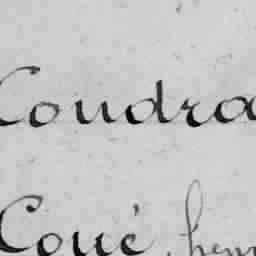 Coudra
Coué, hen